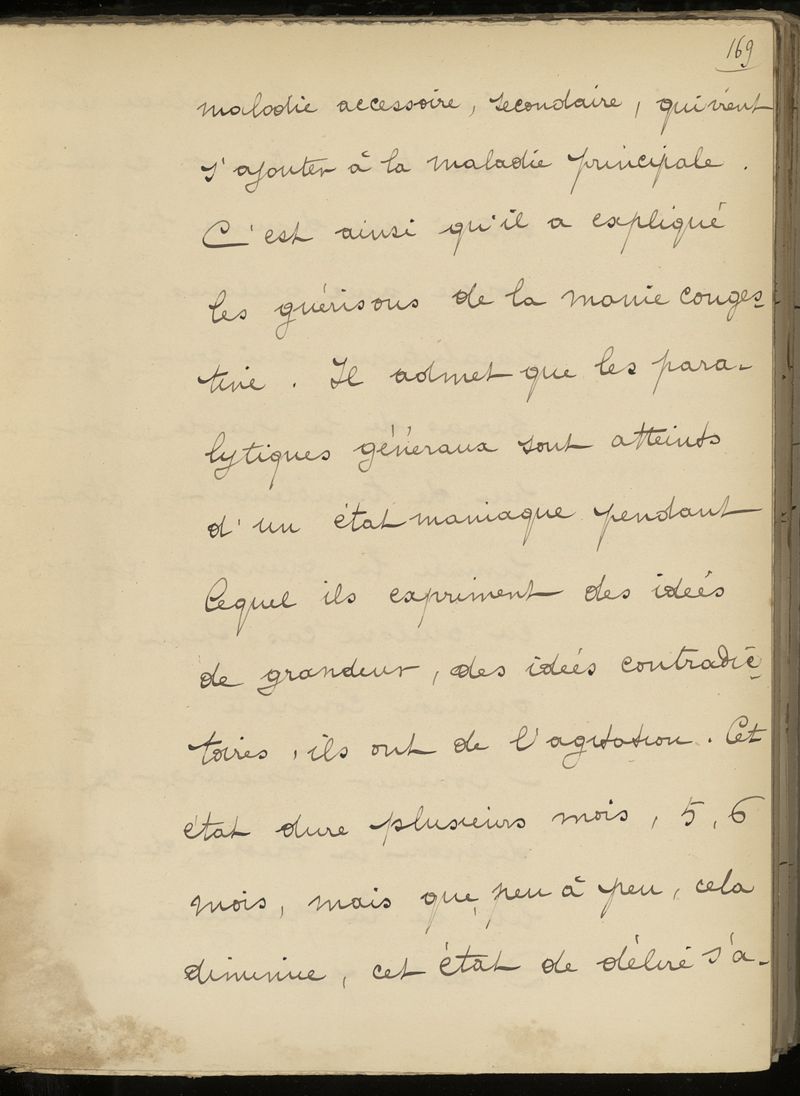 169
maladie accessoire, secondaire, qui vient
s'ajouter à la maladie principale.
C'est ainsi qu'il a expliqué
les guérisons de la manie conges-
tive. Il admet que les para-
lytiques généraux sont atteints
d'un état maniaque pendant
lequel ils expriment des idées
de grandeur, des idées contradic-
toires, ils ont de l'agitation. Cet
état dure plusieurs mois, 5, 6
mois, mais que, peu à peu, cela
diminue, cet état de délire s'a-